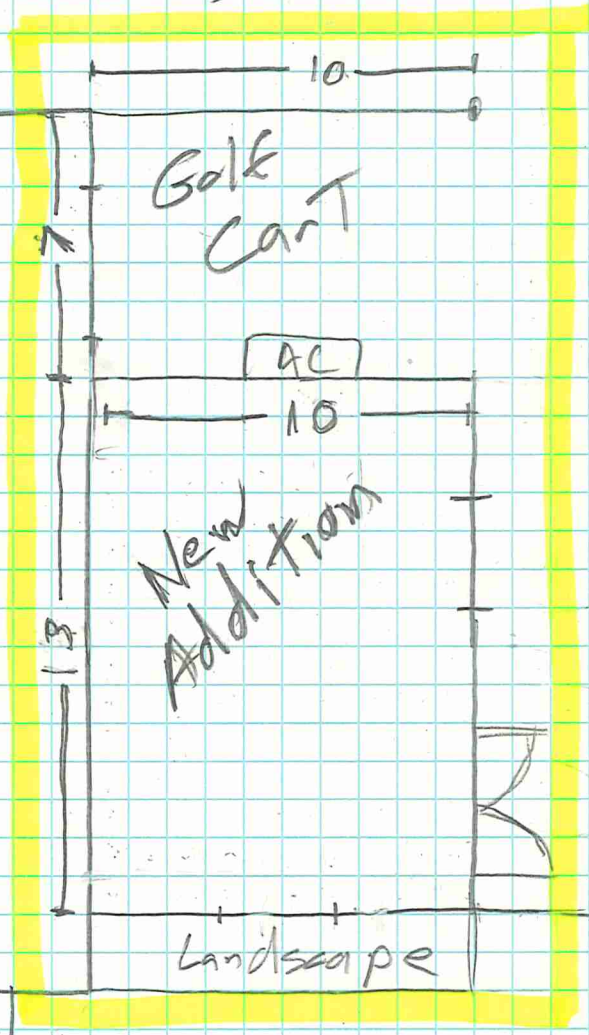 10
Golf
Cart
7
AC
10
New
Addition
13
Landscape